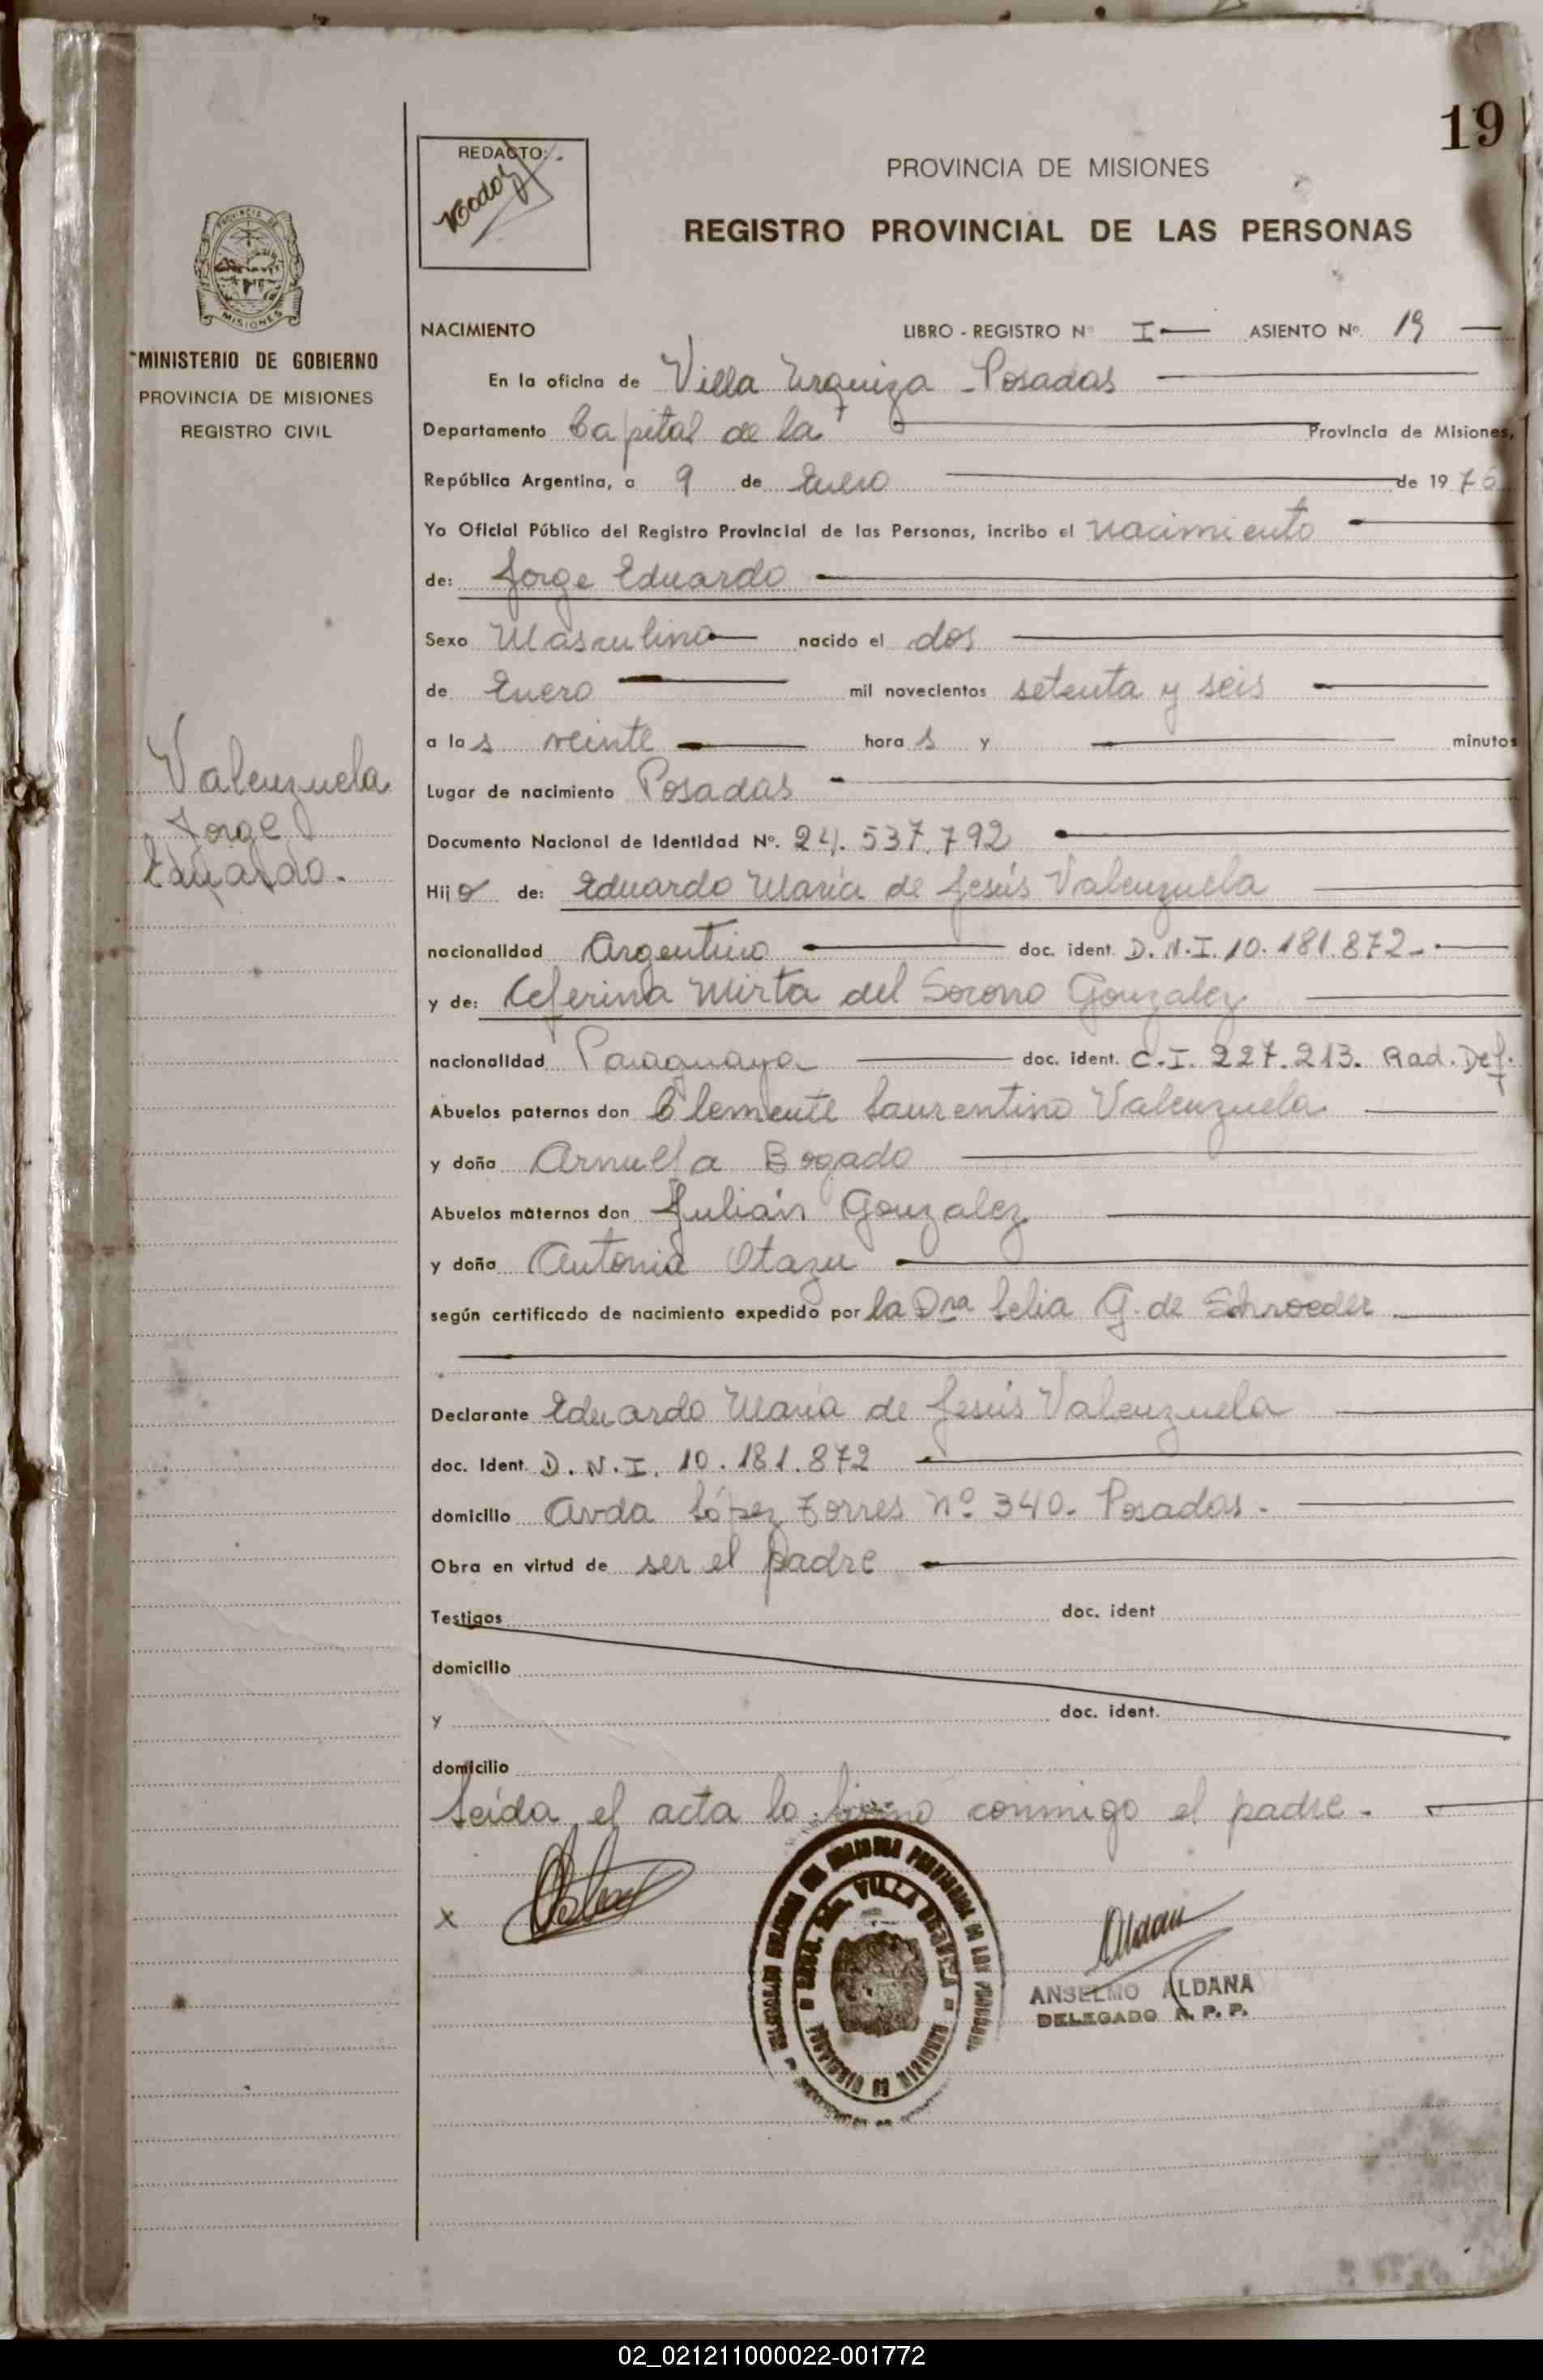 19
REDACTO:
PROVINCIA DE MISIONES
REGISTRO PROVINCIAL DE LAS PERSONAS
PROVINCIA DE
MISIONES
MINISTERIO DE GOBIERNO
PROVINCIA DE MISIONES
REGISTRO CIVIL
Valenzuela
Jorge
Eduardo.
NACIMIENTO LIBRO - REGISTRO Nº I ASIENTO Nº. 19
En la oficina de Villa Urquiza - Posadas
Departamento Capital de la Provincia de Misiones,
República Argentina, a 9 de Enero de 1976
Yo Oficial Público del Registro Provincial de las Personas, incribo el nacimiento
de: Jorge Eduardo
Sexo Masculino nacido el dos
de Enero mil novecientos setenta y seis
a las veinte horas y minutos
Lugar de nacimiento Posadas
Documento Nacional de Identidad Nº. 24.537.792
Hijo de: Eduardo María de Jesús Valenzuela
nacionalidad Argentino doc. ident. D.N.I. 10.181.872-
y de: Ceferina Mirta del Socorro Gonzalez
nacionalidad Paraguaya doc. ident. C.I. 227.213. Rad. Def.
Abuelos paternos don Clemente Laurentino Valenzuela
y doña Arnulfa Bogado
Abuelos maternos don Julián Gonzalez
y doña Antonia Otazu
según certificado de nacimiento expedido por la Dra Celia G. de Schroeder
Declarante Eduardo María de Jesús Valenzuela
doc. Ident. D.N.I. 10.181.872
domicilio Avda López Torres nº 340- Posadas-
Obra en virtud de ser el padre
Testigos doc. ident
domicilio
y doc. ident.
domicilio
Leída el acta lo firmó conmigo el padre.
x
VILLA URQUIZA
ANSELMO ALDANA
DELEGADO R. P. P.
02_021211000022-001772